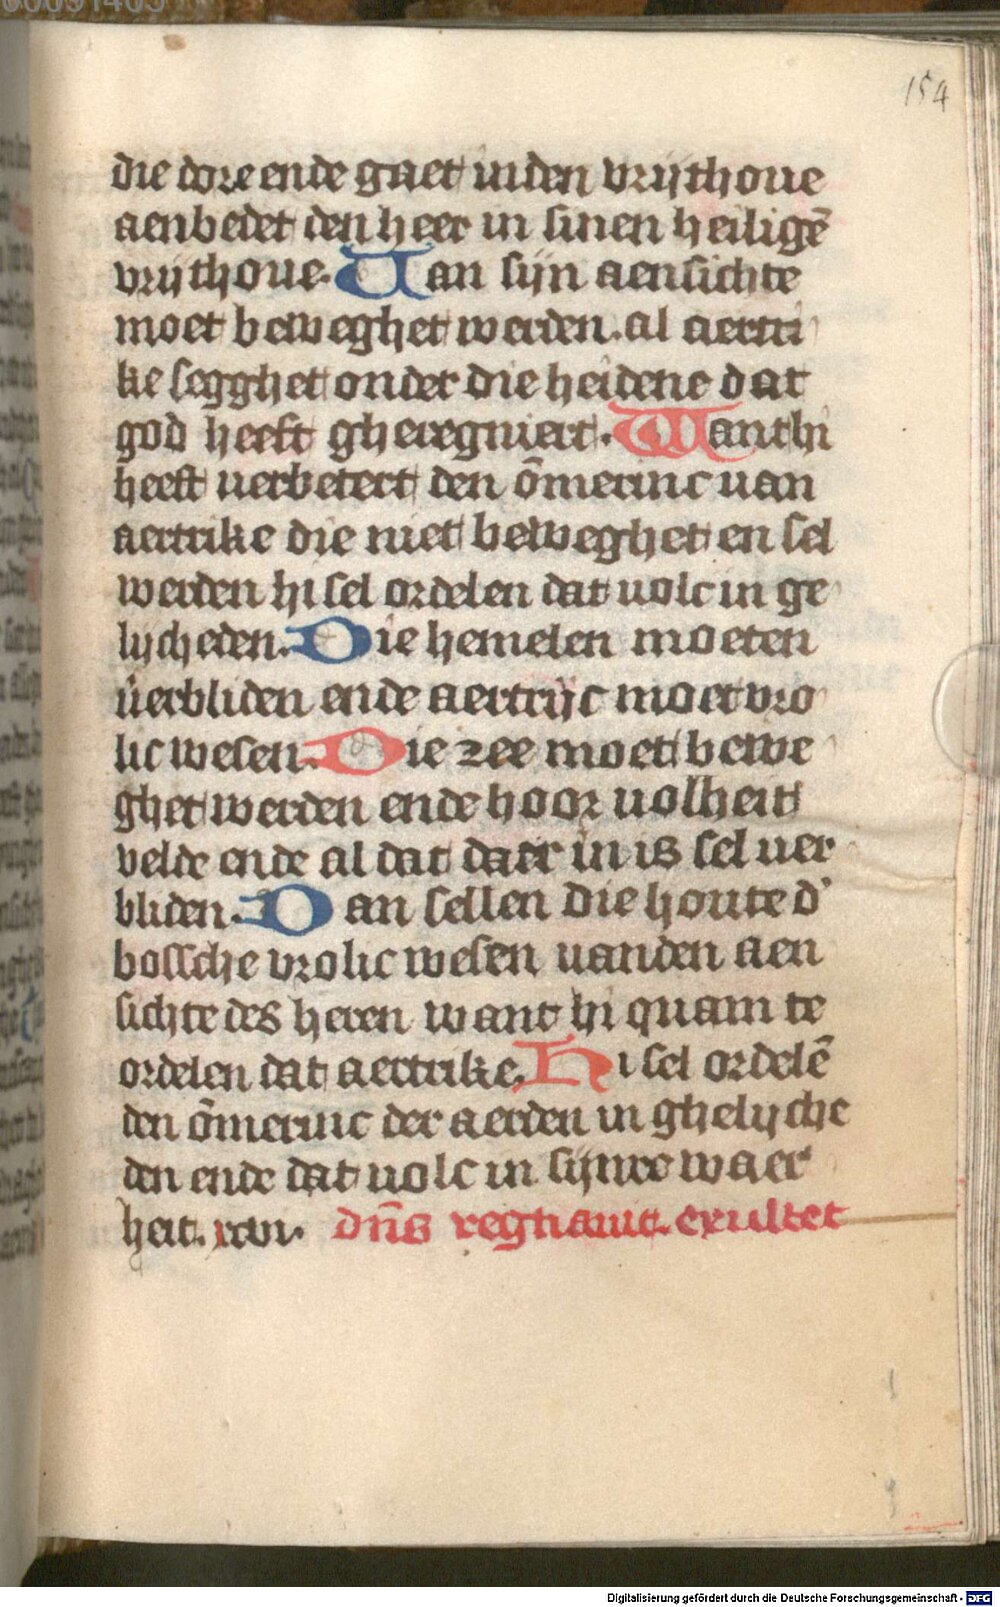 154
die dore ende gaet inden vrijthoue
aenbedet den heer in sinen heiligē
vrijthoue. Uan sijn aensichte
moet beweghet werden. al aertri
ke segghet onder die heidene dat
god heeft gheregniert. Want hi
heeft uerbetert den ōmerinc uan
aertrike die niet beweghet en sel
werden hi sel ordelen dat uolc in ge
lijcheden. Die hemelen moeten
uerbliden ende aertrijc moet vro
lic wesen. Die zee moet bewe
ghet werden ende hoor uolheit
velde ende al dat daer in is sel uer
bliden. Dan sellen die houte d'
bossche vrolic wesen uanden aen
sichte des heren want hi quam te
ordelen dat aertrike. Hi sel ordelē
den ōmerinc der aerden in ghelijche
den ende dat uolc in sijnre waer
heit. xcvi. dn̄s regnauit. exultet
Digitalisierung gefördert durch die Deutsche Forschungsgemeinschaft - DFG